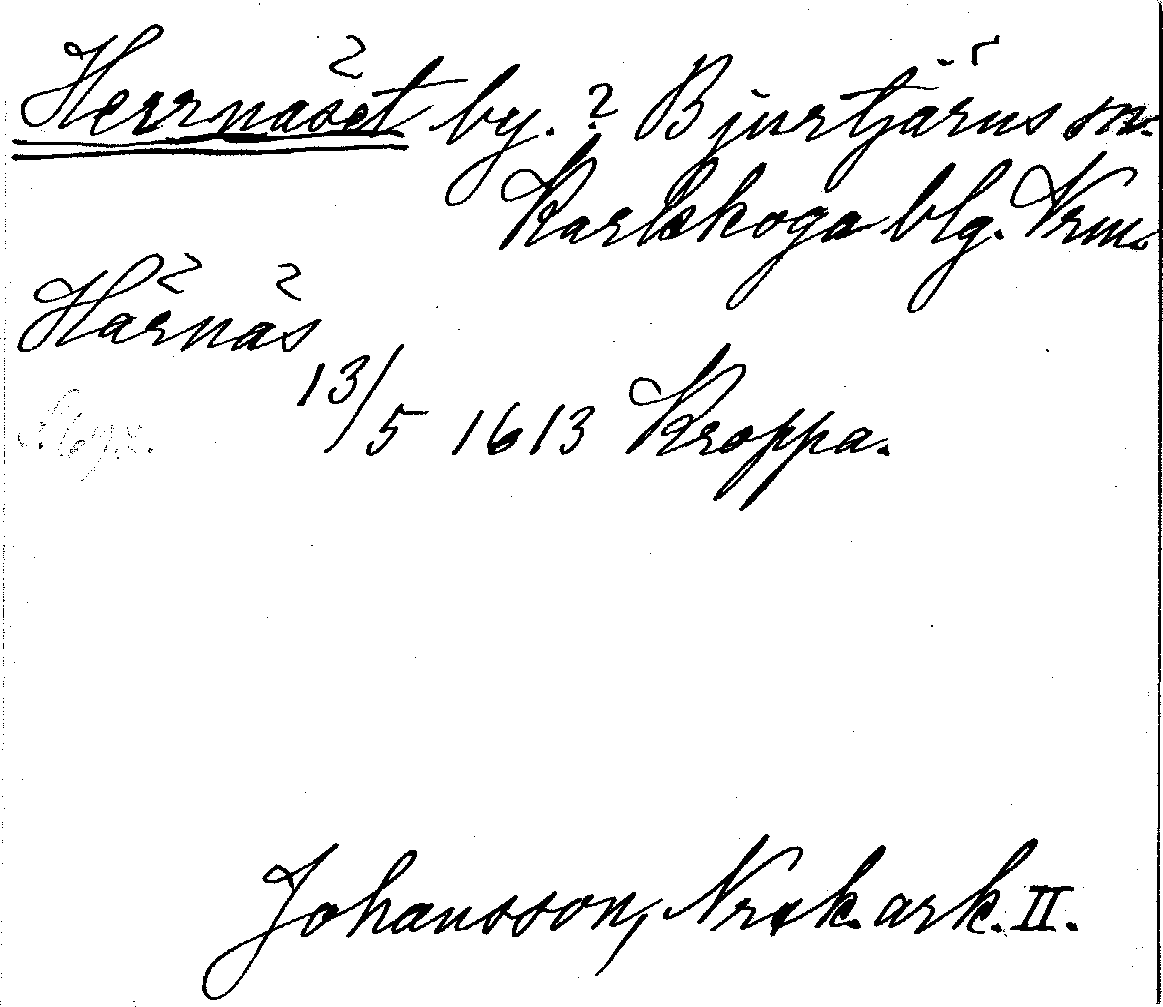 Herrnäset by. ? Bjurtjärns sn.
Karlskoga blg. Vrm.
Härnäs
13/5 1613 Kroppa.
Johansson, Nrsk. ark. II.